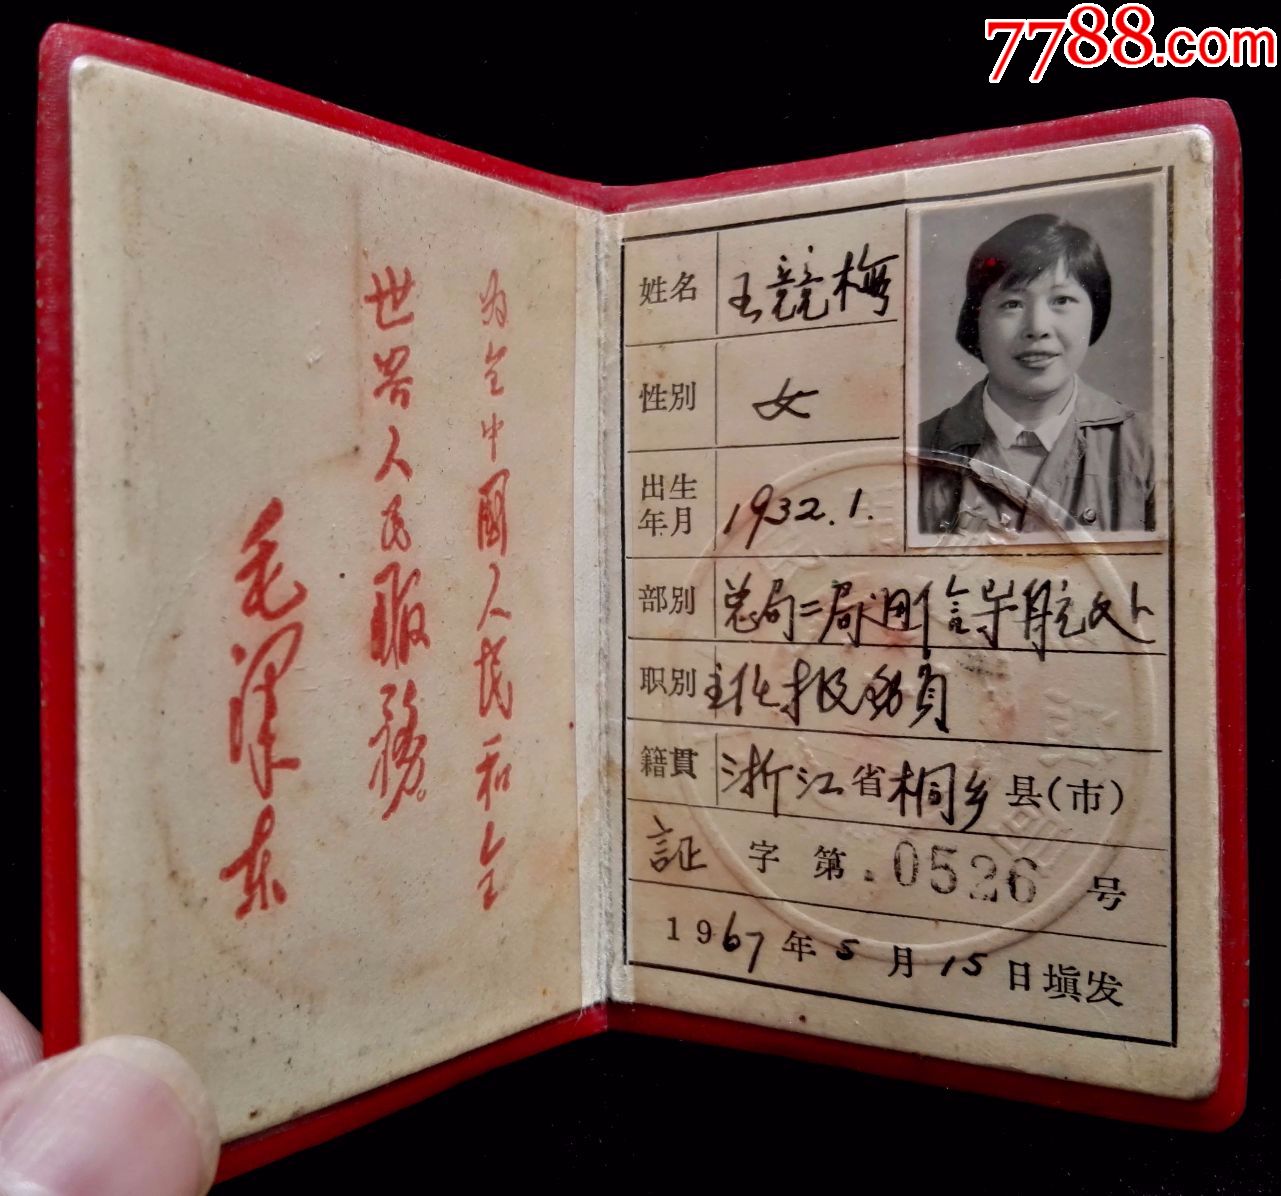 7788.com
为全中國人民和全
世界人民服務。
毛泽东
姓名 王競梅
性別 女
出生年月 1932.1.
部別 总局二局通信导航处
职別 主任报务員
籍貫 浙江省桐乡县(市)
証字第0526号
1967年5月15日填发